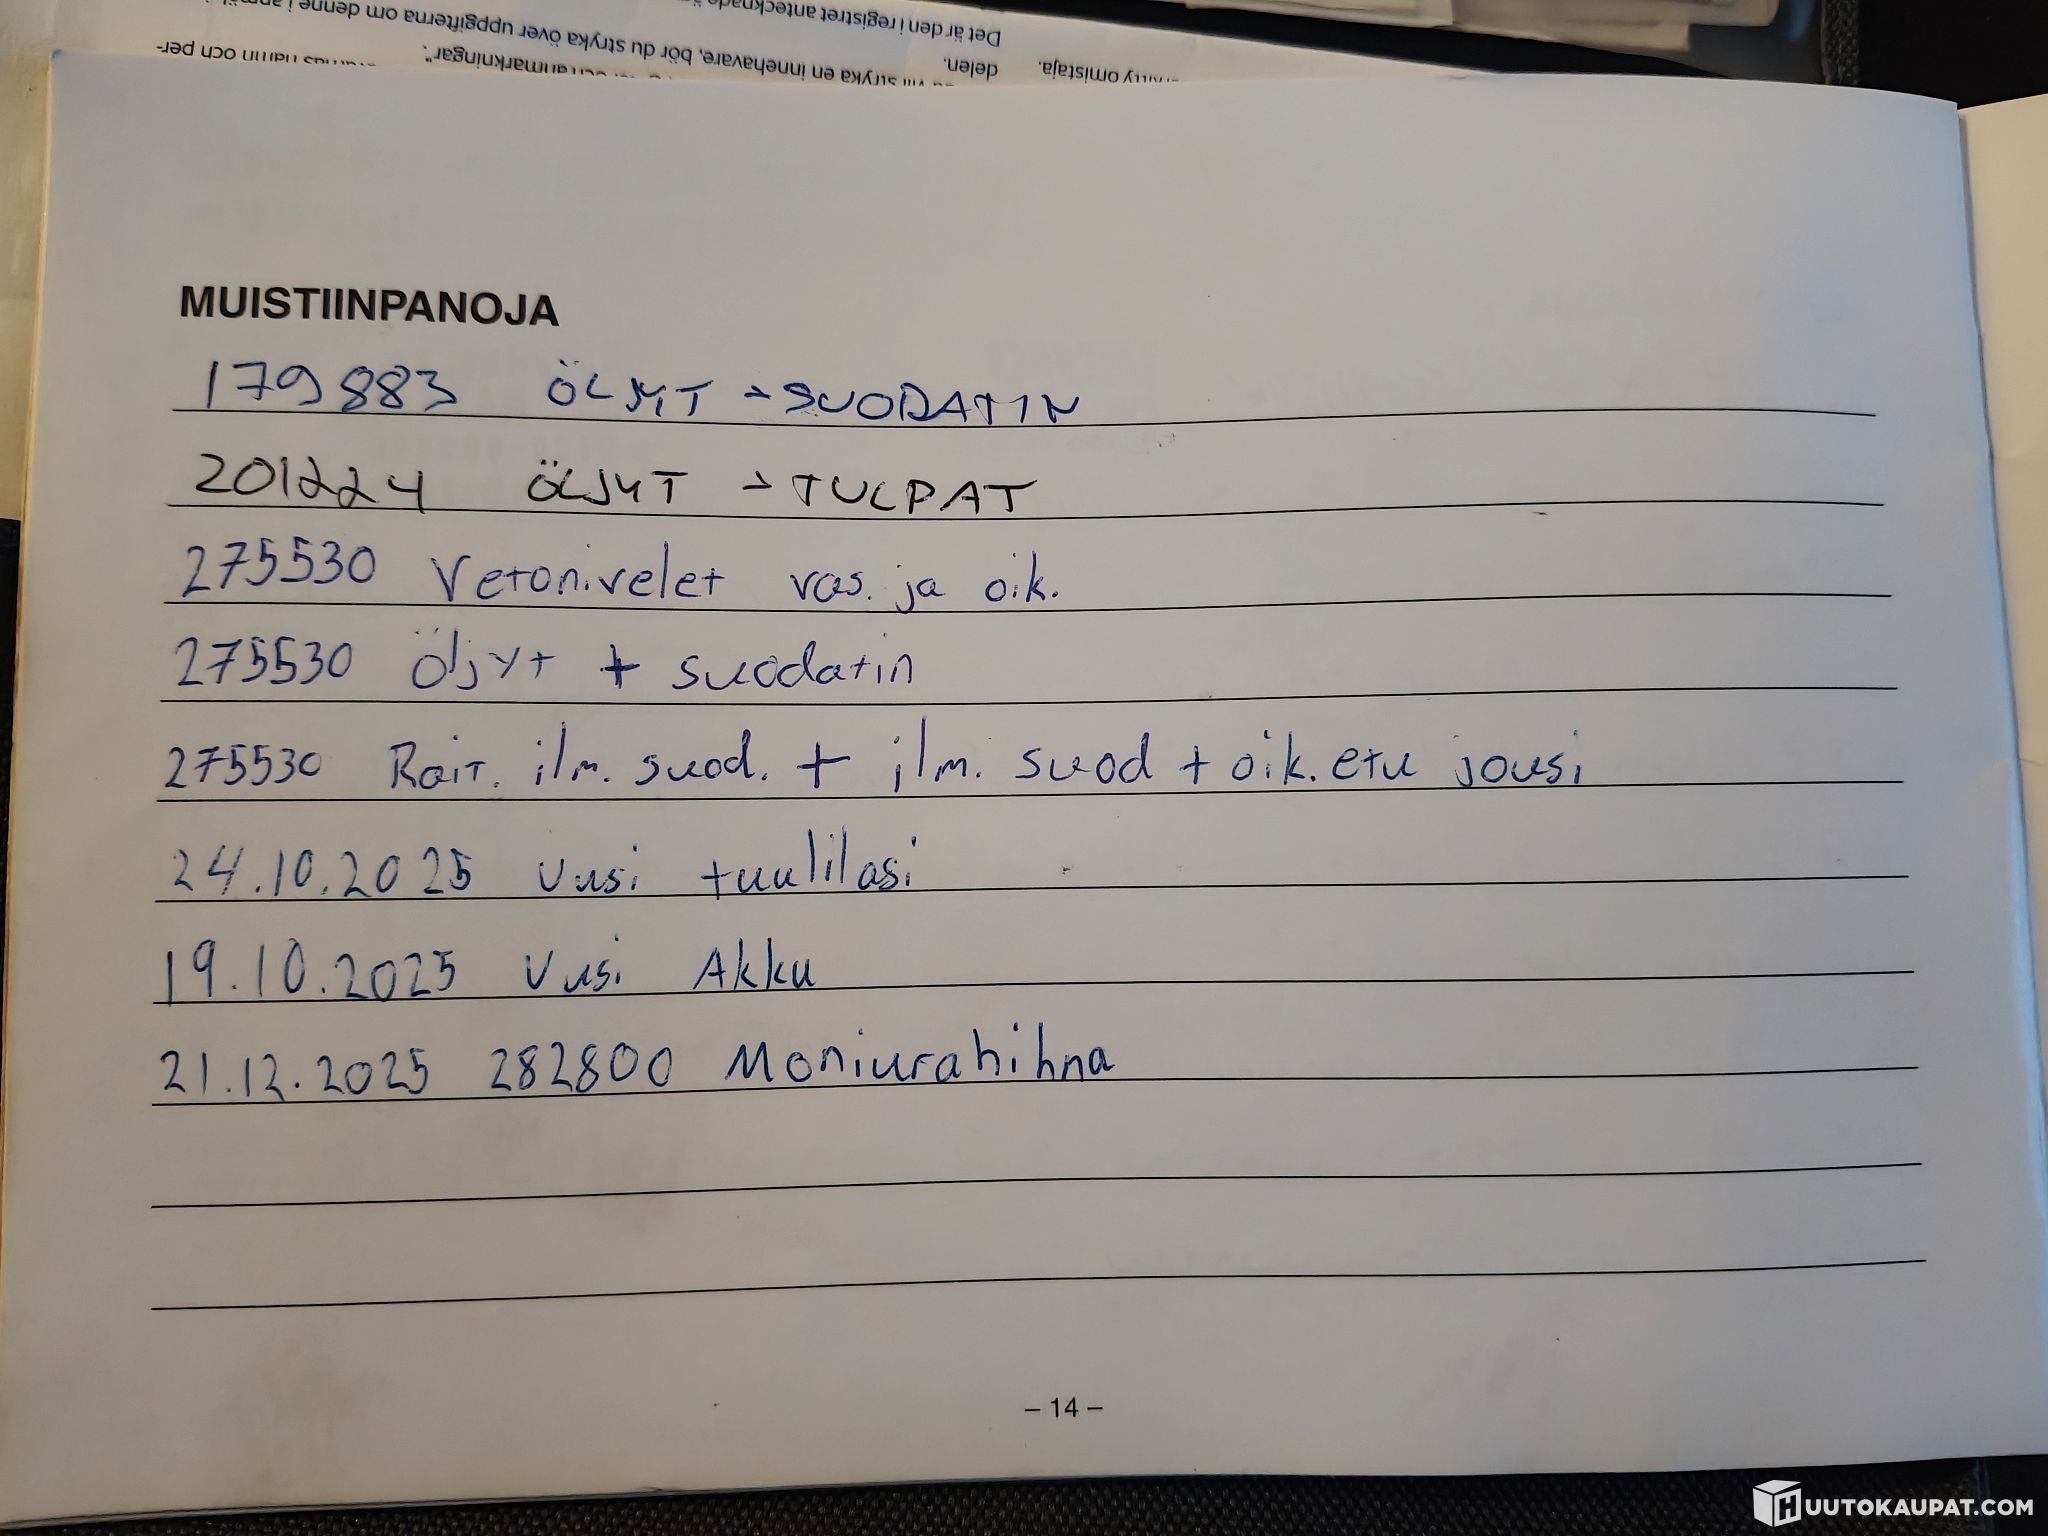 Det är den i registret antecknade
delen.
stryka en innehavare, bör du stryka över uppgifterna om denne i
anmärkningar".
namn och per-
omistaja.
MUISTIINPANOJA
179883 ÖLJYT -SUODATIN
201224 ÖLJYT -TULPAT
275530 Vetonivelet vas. ja oik.
275530 Öljyt + suodatin
275530 Rait. ilm. suod. + ilm. suod + oik. etu jousi
24.10.2025 Uusi tuulilasi
19.10.2025 Uusi Akku
21.12.2025 282800 Moniurahihna
– 14 –
HUUTOKAUPAT.COM